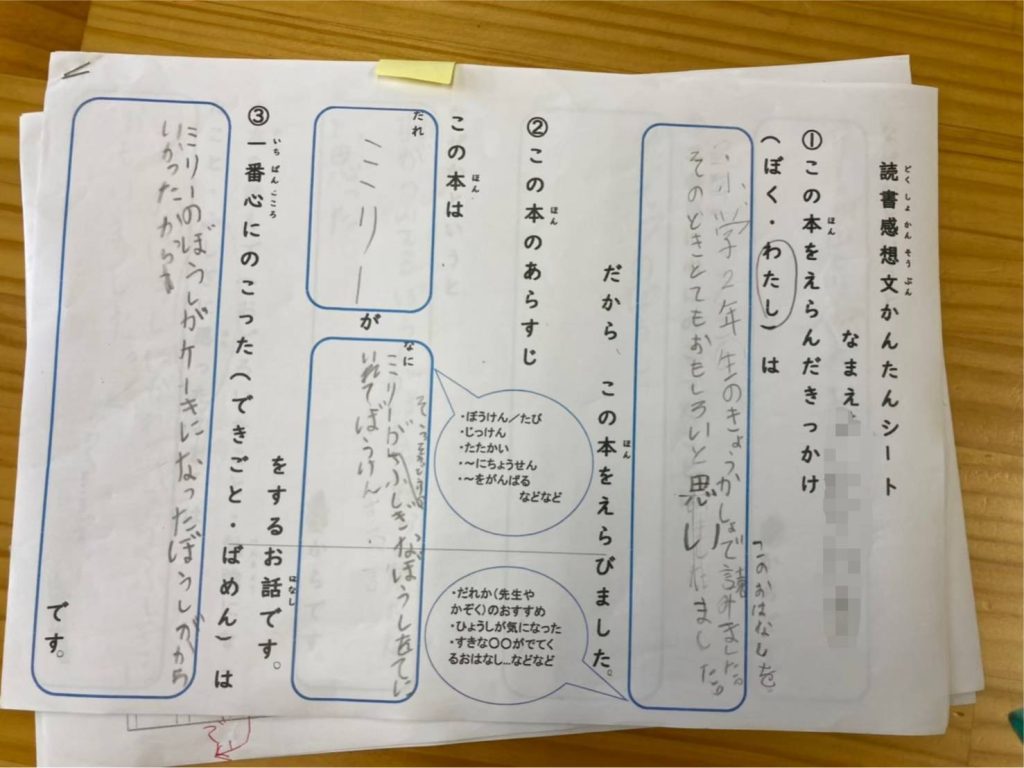 読書感想文かんたんシート
どくしょかんそうぶん
なまえ
①この本をえらんだきっかけ
ほん
(ぼく・わたし)は
このおはなしを
小学2年生のきょうかしょで読みました。
そのときとてもおもしろいと思いました。
だから、この本をえらびました。
ほん
・だれか(先生や
かぞく)のおすすめ
・ひょうしが気になった
・すきな〇〇がでてく
るおはなし…などなど
②この本のあらすじ
ほん
・ぼうけん/たび
・じっけん
・たたかい
・～にちょうせん
・～をがんばる
などなど
この本は
ほん
だれ
ミリー
が
なに
ミリーがふしぎなぼうしをてに
いれてぼうけん
をするお話です。
はなし
③一番心にのこった(できごと・ばめん)は
いちばんこころ
ミリーのぼうしがケーキになったぼうしがから
いかったから
です。